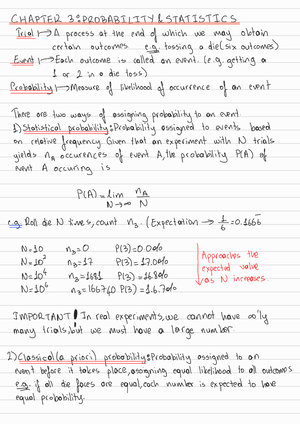 CHAPTER 3: PROBABILITY & STATISTICS
Trial ↦ A process at the end of which we may obtain
certain outcomes e.g. tossing a die (six outcomes)
Event ↦ Each outcome is called an event. (e.g. getting a
1 or 2 in a die toss)
Probability ↦ Measure of likelihood of occurrence of an event
There are two ways of assigning probability to an event
1) Statistical probability: Probability assigned to events based
on relative frequency. Given that an experiment with N trials
yields n_A occurences of event A, the probability P(A) of
event A occuring is
P(A) = lim N→∞ n_A/N
e.g. Roll die N times, count n_3. (Expectation → 1/6 = 0.1666
N=10 n_3=0 P(3)=0.0%
N=10² n_3=17 P(3)=17.0%
N=10⁴ n_3=1681 P(3)=16.8%
N=10⁶ n_3=166740 P(3)=16.7%
Approaches the
expected value
as N increases.
IMPORTANT! In real experiments, we cannot have ∞'ly
many trials, but we must have a large number.
2) Classical (a priori) probability: Probability assigned to an
event before it takes place, assigning equal likelihood to all outcomes
e.g. if all die faces are equal, each number is expected to have
equal probability.